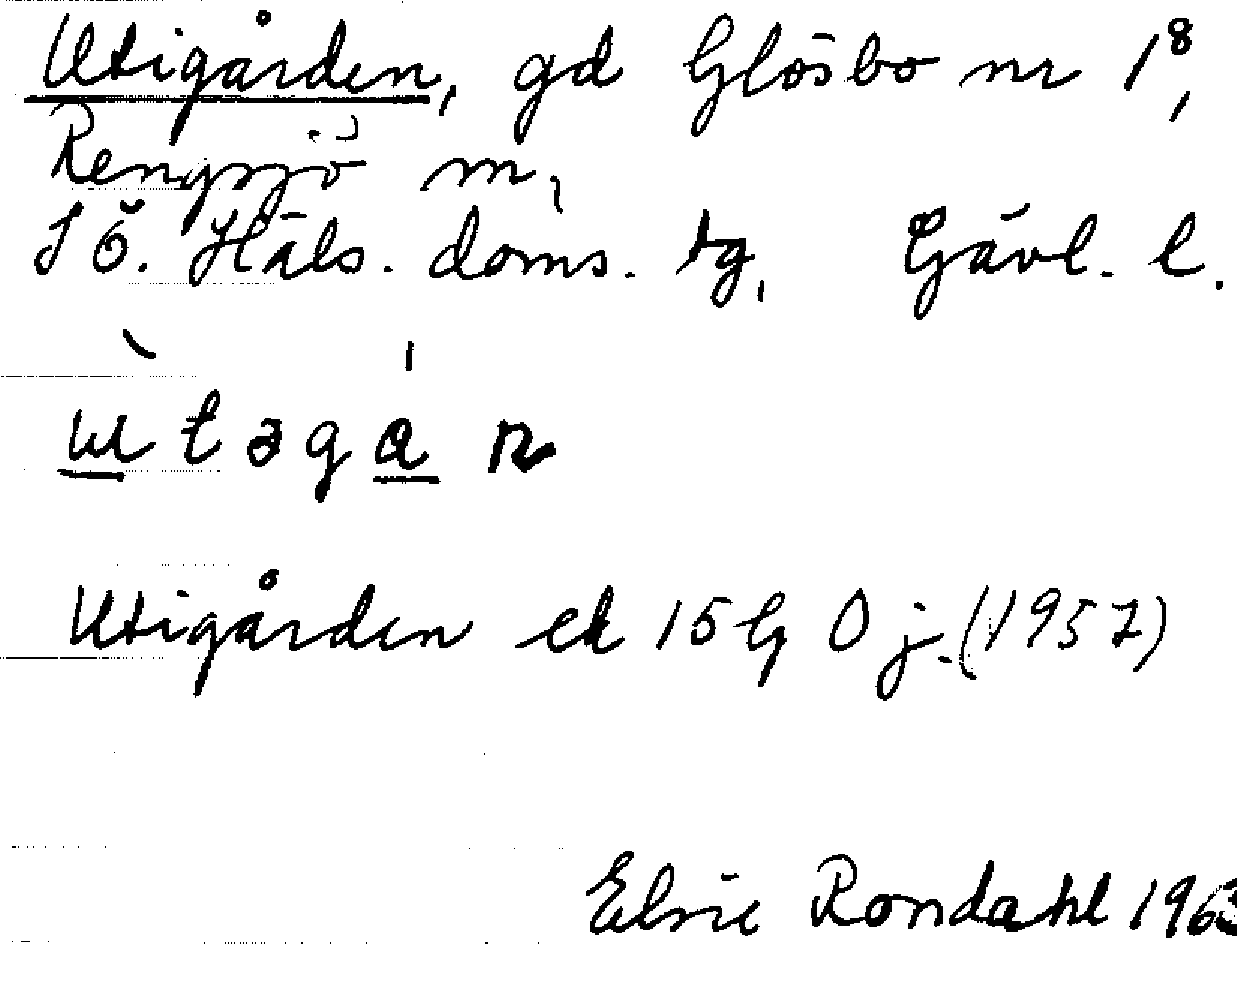 Utigården, gd Glösbo nr 1⁸,
Rengsjö sn,
SÖ. Häls. doms. tg, Gävl. l.
ùtəgán
Utigården ek 15 G Ö j. (1957)
Elsie Rondahl 1963